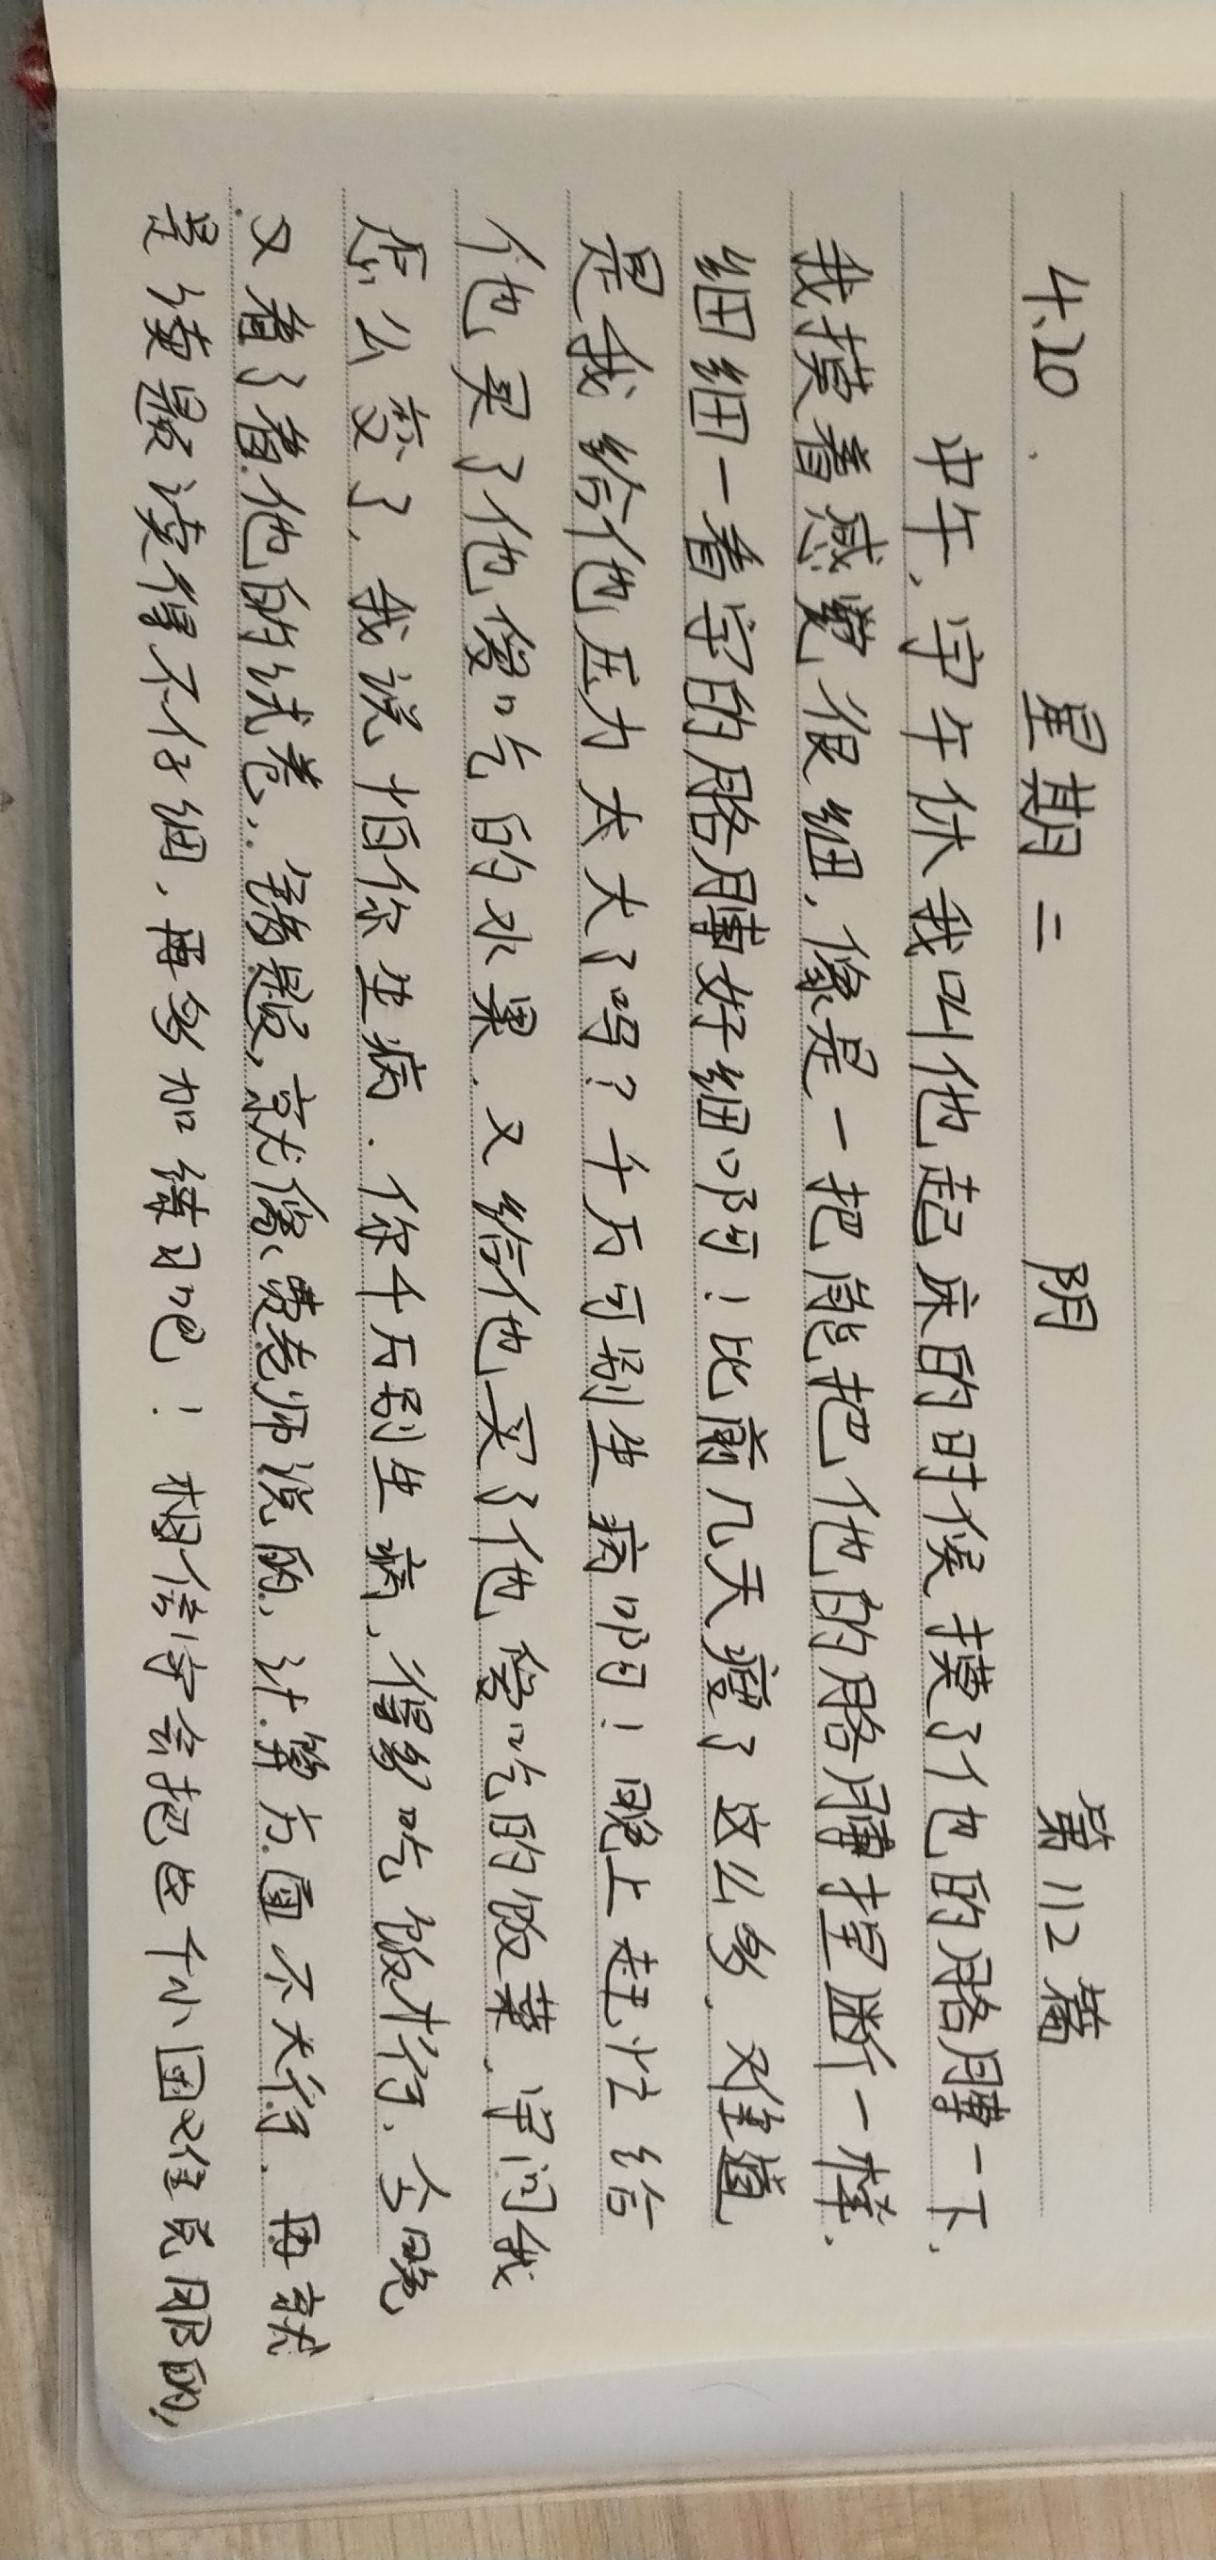 4.20. 星期二 阴 第112篇
中午，宇午休我叫他起床的时候摸了他的胳膊一下，
我摸着感觉很细，像是一把能把他的胳膊捏断一样.
细细一看宇的胳膊好细啊！比前几天瘦了这么多．难道
是我给他压力太大了吗？千万可别生病啊！晚上赶忙给
他买了他爱吃的水果．又给他买了他爱吃的饭菜．宇问我
怎么变了，我说怕你生病．你千万别生病，得多吃饭才行，今晚
又看了看他的试卷，错题，就像费老师说的，计算方面不太行．再就
是读题读得不仔细，再多加练习吧！相信宇会把这个小困难克服的，